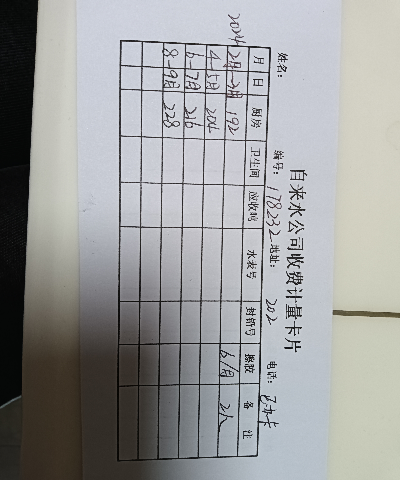 自来水公司收费计量卡片
姓名: 编号: 178232 地址: 202 电话: 已办卡
月 日 厨房 卫生间 应收吨 水表号 封铅号 搬胶 备注
2024 2月-3月 192
4-5月 204 6/月 2人
6-7月 216
8-9月 228